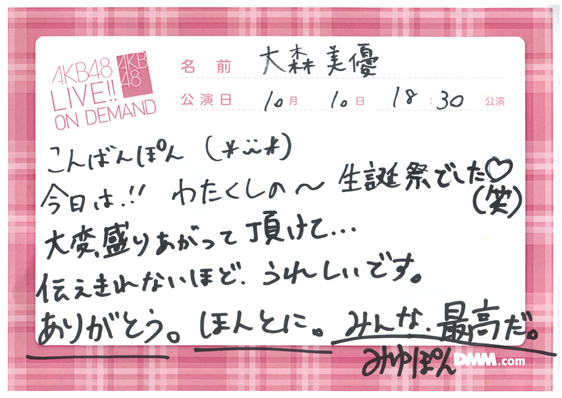 AKB48
LIVE!!
ON DEMAND
AKB
48
名 前 大森美優
公演日 10月 10日 18:30 公演
こんばんぽん (*¨*)
今日は、!! わたくしの〜 生誕祭でした♡
(笑)
大変盛りあがって頂けて...
伝えきれないほど、うれしいです。
ありがとう。ほんとに。みんな、最高だ。
みゆぽん
DMM.com